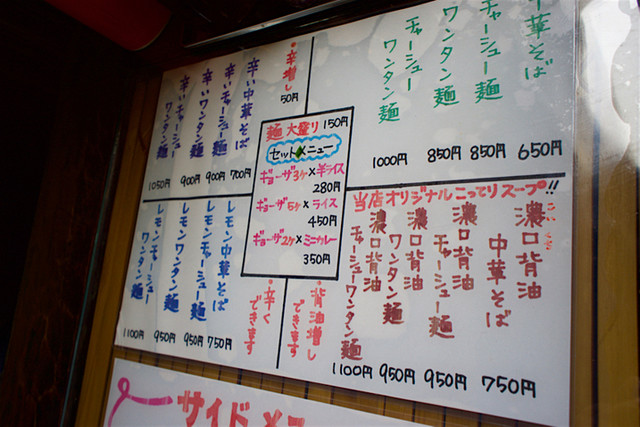 中華そば
650円
チャーシュー麺
850円
ワンタン麺
850円
チャーシュー
ワンタン麺
1000円
・辛増し
50円
辛い中華そば
700円
辛いチャーシュー麺
900円
辛いワンタン麺
900円
辛いチャーシュー
ワンタン麺
1050円
麺 大盛り 150円
セットメニュー
ギョーザ3ケ×半ライス
280円
ギョーザ5ケ×ライス
450円
ギョーザ2ケ×ミニカレー
350円
当店オリジナルこってりスープ!!
濃口背油
中華そば
750円
濃口背油
チャーシュー麺
950円
濃口背油
ワンタン麺
950円
濃口背油
チャーシューワンタン麺
1100円
・背油増し
できます
・辛く
できます
レモン中華そば
750円
レモンチャーシュー麺
950円
レモンワンタン麺
950円
レモンチャーシュー
ワンタン麺
1100円
サイドメニ